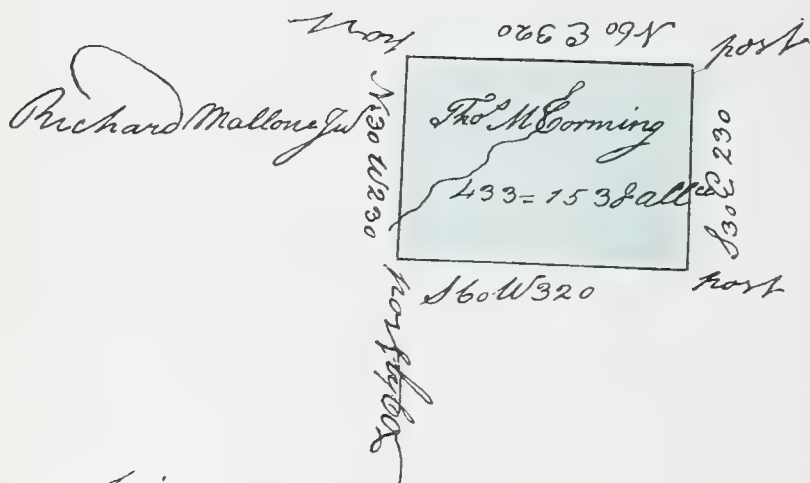 post
N60 E 320
post
Richard Mallone Jur
N30 W230
Thos. McCorming
433=153 & allce
S30 E 230
S60 W320
post
post